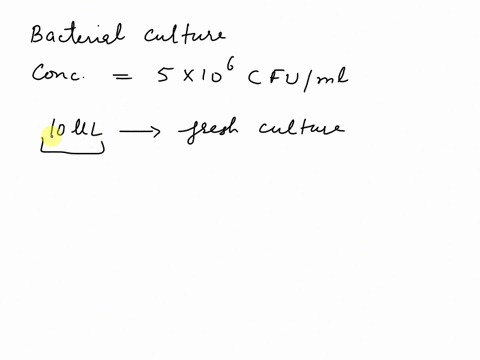 Bacterial culture
Conc. = 5 × 10⁶ CFU/ml
10 µL → fresh culture